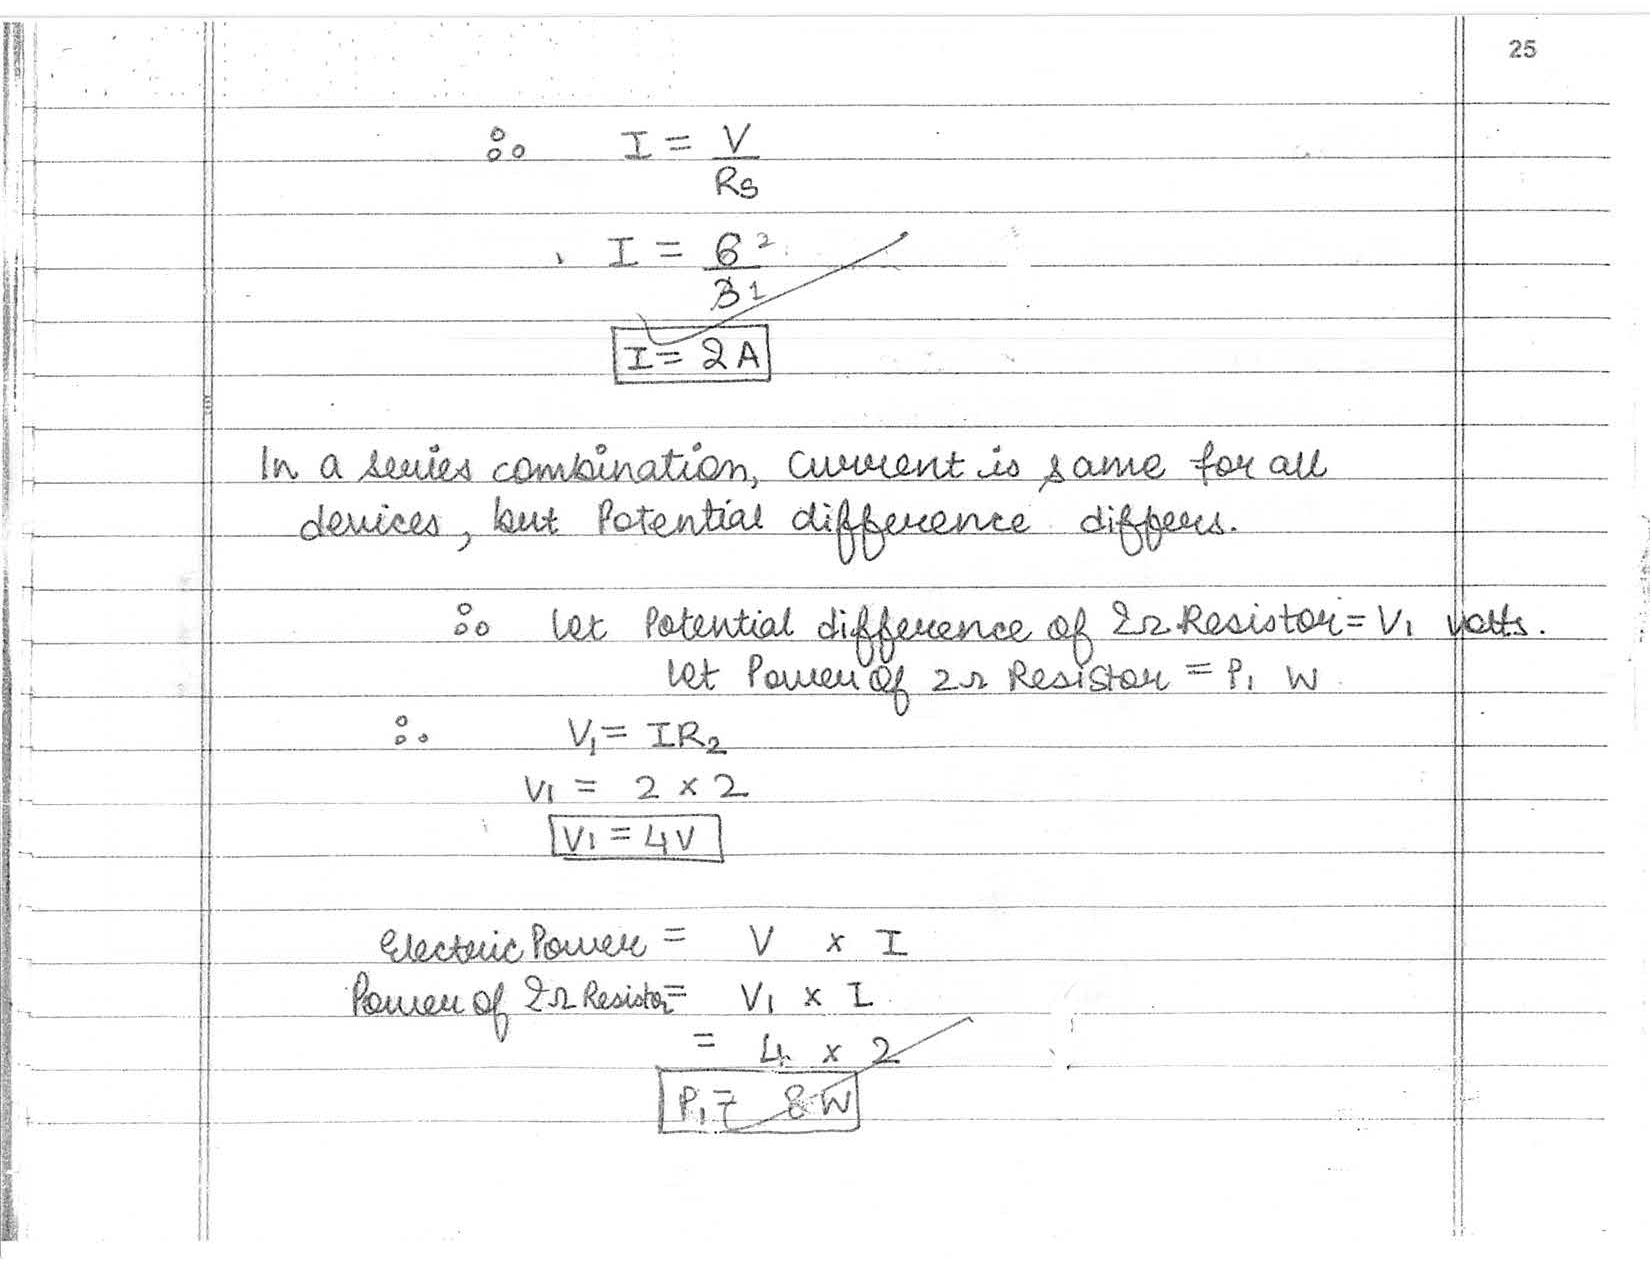 25
∴ I = V
Rs
I = 6 2
3 1
I = 2 A
In a series combination, current is same for all
devices, but Potential difference differs.
∴ let Potential difference of 2Ω Resistor = V1 volts.
let Power of 2Ω Resistor = P1 W
∴ V1 = IR2
V1 = 2 × 2
V1 = 4V
Electric Power = V × I
Power of 2Ω Resistor = V1 × I
= 4 × 2
P1 = 8 W